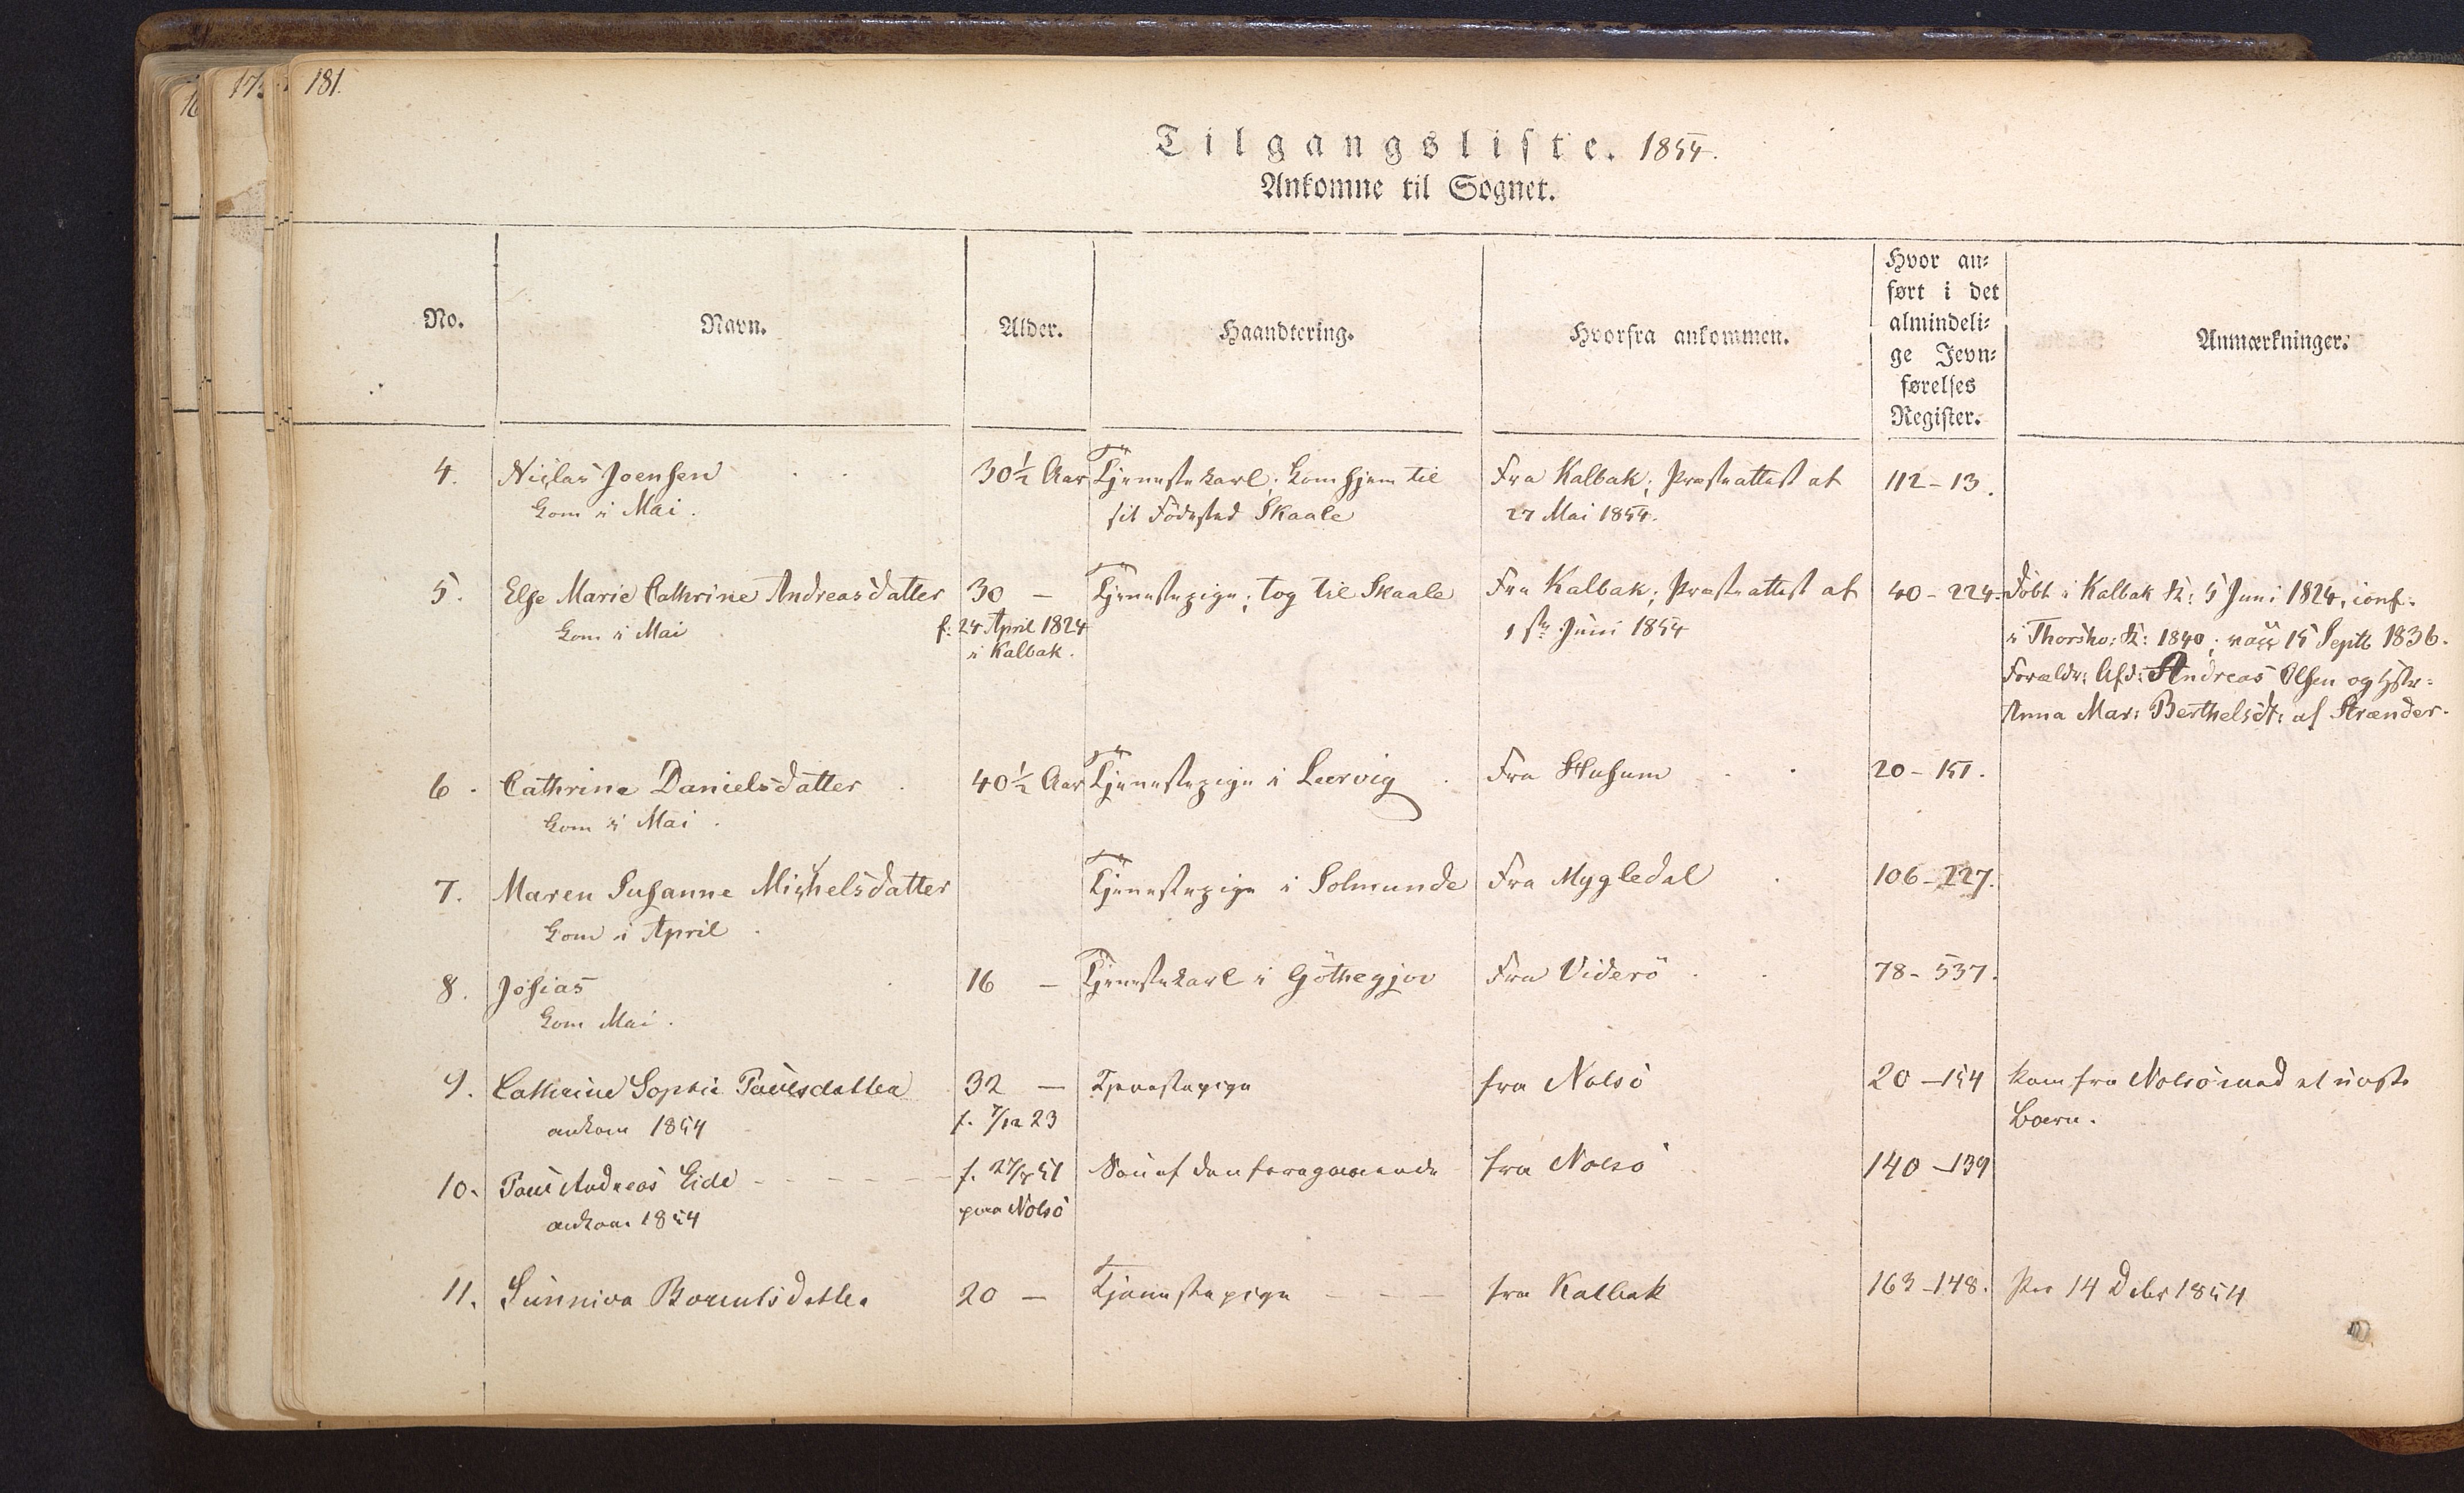 181.
17
Tilgangsliste. 1854.
Ankomne til Sognet.
No.
Navn.
Alder.
Haandtering.
Hvorfra ankommen.
Hvor an-
ført i det
almindeli-
ge Jevn-
førelses
Register.
Anmærkninger.
4. Niclas Joensen 30½ Aar Tjenestekarl; kom hjem til Fra Kalbak; Præsteattest af 112-13.
kom i Mai. sit Födested Skaale 27 Mai 1854.
5. Else Marie Cathrine Andreasdatter 30 — Tjenestepige; tog til Skaale Fra Kalbak; Præsteattest af 40-224. Döbt i Kalbak K: 5 Juni 1824, conf.
kom i Mai f: 24 April 1824 1ste Juni 1854 i Thorshv: K: 1840; vacc 15 Septb 1836.
i Kalbak. Forældr: Afd: Andreas Olsen og Hstr:
Anna Mar: Berthelsdt: af Strænder.
6. Cathrine Danielsdatter 40½ Aar Tjenestepige i Leervig Fra Husum 20-151.
kom i Mai.
7. Maren Susanne Michelsdatter Tjenestepige i Solmunde Fra Mygledal 106-227.
kom i April
8. Josias 16 — Tjenestekarl i Göthegjov Fra Viderö 78-537.
kom Mai.
9. Cathrine Sophie Poulsdatter 32 — Tjenestepige fra Nolsö 20-154 kom fra Nolsö med et uægte
ankom 1854 f. 7/12 23 Barn.
10. Poul Andreas Eide f. 27/8 51 Søn af den foregaaende fra Nolsö 140-139
ankom 1854 paa Nolsö
11. Sunniva 20 — Tjenestepige fra Kalbak 163-148. Pr 14 Decbr 1854